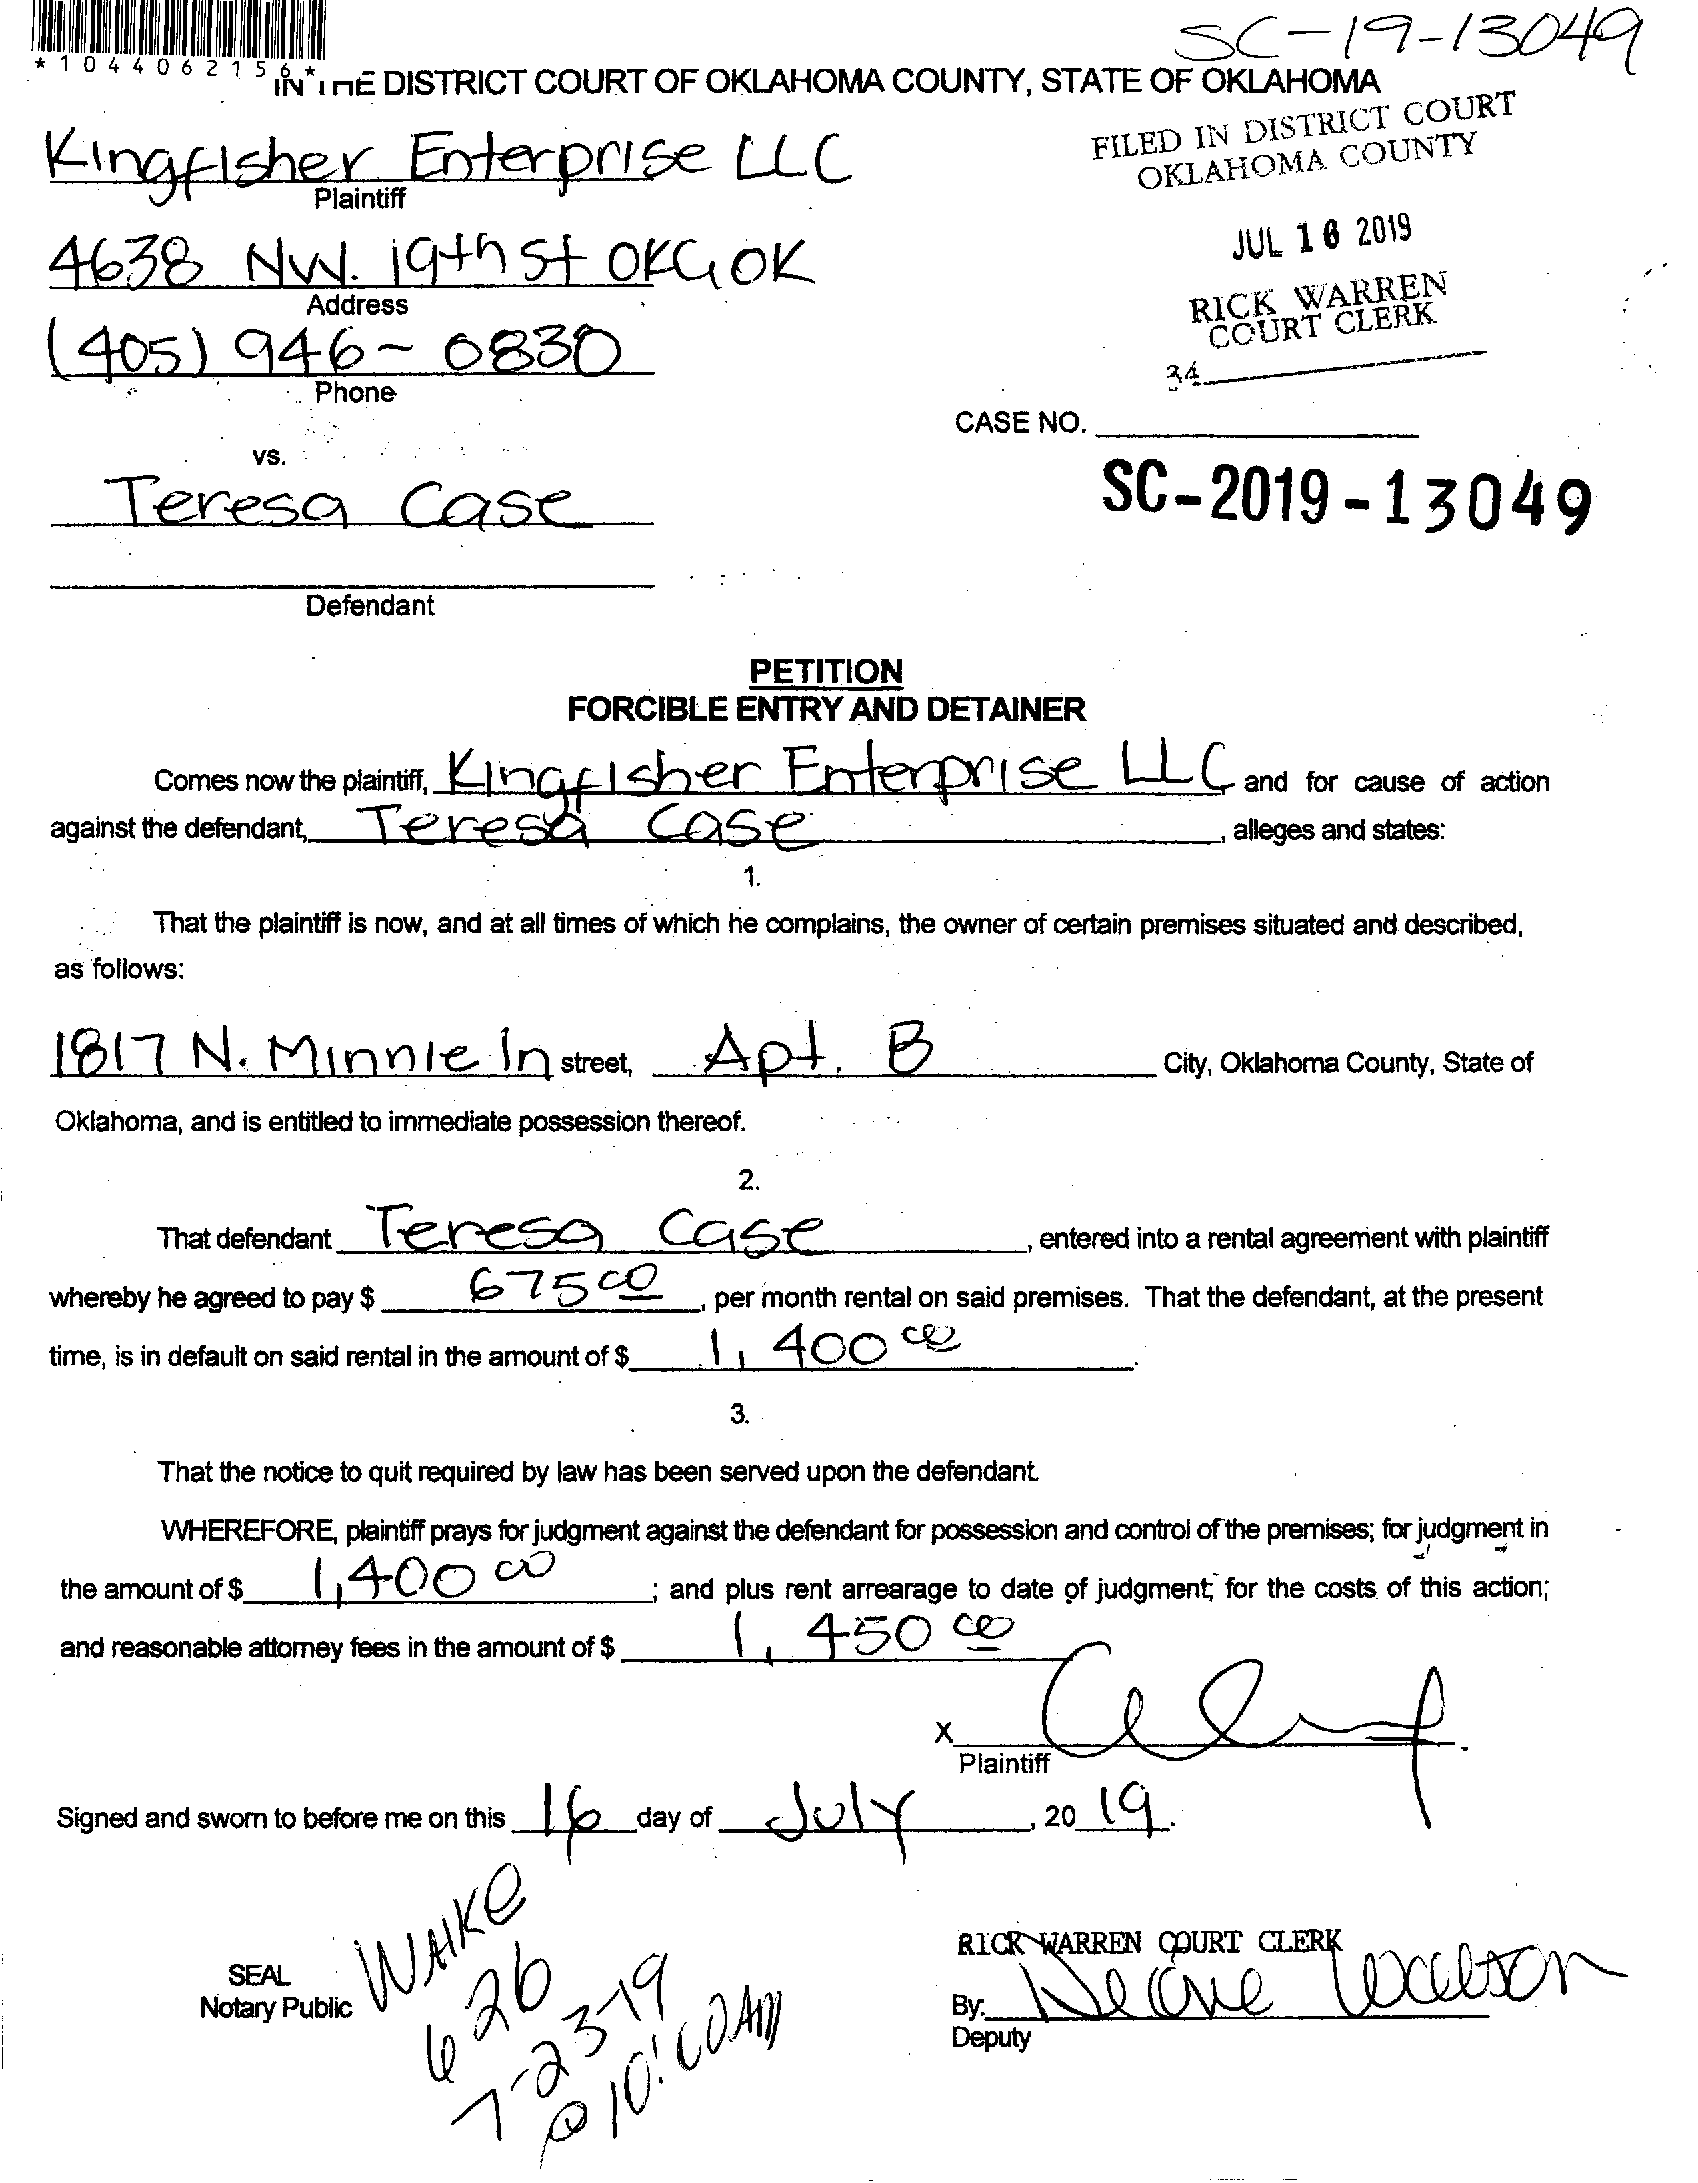 SC-19-13049
*1044062156*
IN THE DISTRICT COURT OF OKLAHOMA COUNTY, STATE OF OKLAHOMA
FILED IN DISTRICT COURT
OKLAHOMA COUNTY
Kingfisher Enterprise LLC
Plaintiff
JUL 16 2019
4638 NW. 19th St OKC, OK
Address
RICK WARREN
COURT CLERK
(405) 946-0830
Phone
34
CASE NO.
vs.
SC-2019-13049
Teresa Case
Defendant
PETITION
FORCIBLE ENTRY AND DETAINER
Comes now the plaintiff, Kingfisher Enterprise LLC and for cause of action
against the defendant, Teresa Case, alleges and states:
1.
That the plaintiff is now, and at all times of which he complains, the owner of certain premises situated and described,
as follows:
1817 N. Minnie ln street, Apt. B City, Oklahoma County, State of
Oklahoma, and is entitled to immediate possession thereof.
2.
That defendant Teresa Case, entered into a rental agreement with plaintiff
whereby he agreed to pay $ 675 00, per month rental on said premises. That the defendant, at the present
time, is in default on said rental in the amount of $ 1,400 00.
3.
That the notice to quit required by law has been served upon the defendant.
WHEREFORE, plaintiff prays for judgment against the defendant for possession and control of the premises; for judgment in
the amount of $ 1,400 00; and plus rent arrearage to date of judgment; for the costs of this action;
and reasonable attorney fees in the amount of $ 1,450 00
X
Plaintiff
Signed and sworn to before me on this 16 day of July, 20 19.
SEAL
Notary Public
WAIKE
626
7-23-19
@ 10:00AM
RICK WARREN COURT CLERK
By:
Deputy